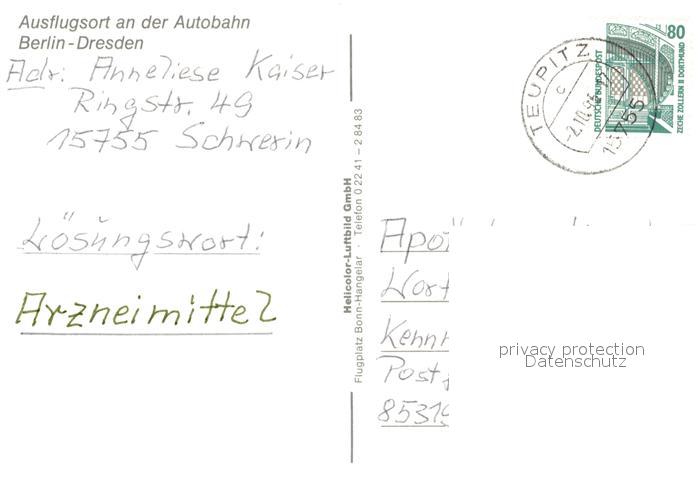 Ausflugsort an der Autobahn
Berlin-Dresden
Adr: Anneliese Kaiser
Ringstr. 49
15755 Schwerin
Lösungswort:
Arzneimittel
Helicolor-Luftbild GmbH
Flugplatz Bonn-Hangelar · Telefon 0 22 41 – 2 84 83
TEUPITZ
c
15755
80
DEUTSCHE BUNDESPOST
ZECHE ZOLLERN II DORTMUND
Apo
Wort
Kenn
Post
85319
privacy protection
Datenschutz